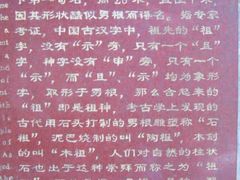 因其形状酷似男根而得名。据专家
考证，中国古汉字中，祖先的“祖”
字，没有“示”旁，只有一个“且”
字，神字没有“申”旁，只有一个
“示”，而“且”、“示”均为象形
字，取形于男根，那么合起来的
“祖”即是祖种，考古学上发现的
古代用石头打制的男根雕塑称“石
祖”，泥巴烧制的叫“陶祖”，木刻
的叫“木祖”，人们对自然的柱状
石也出于这种崇拜而称之为“祖